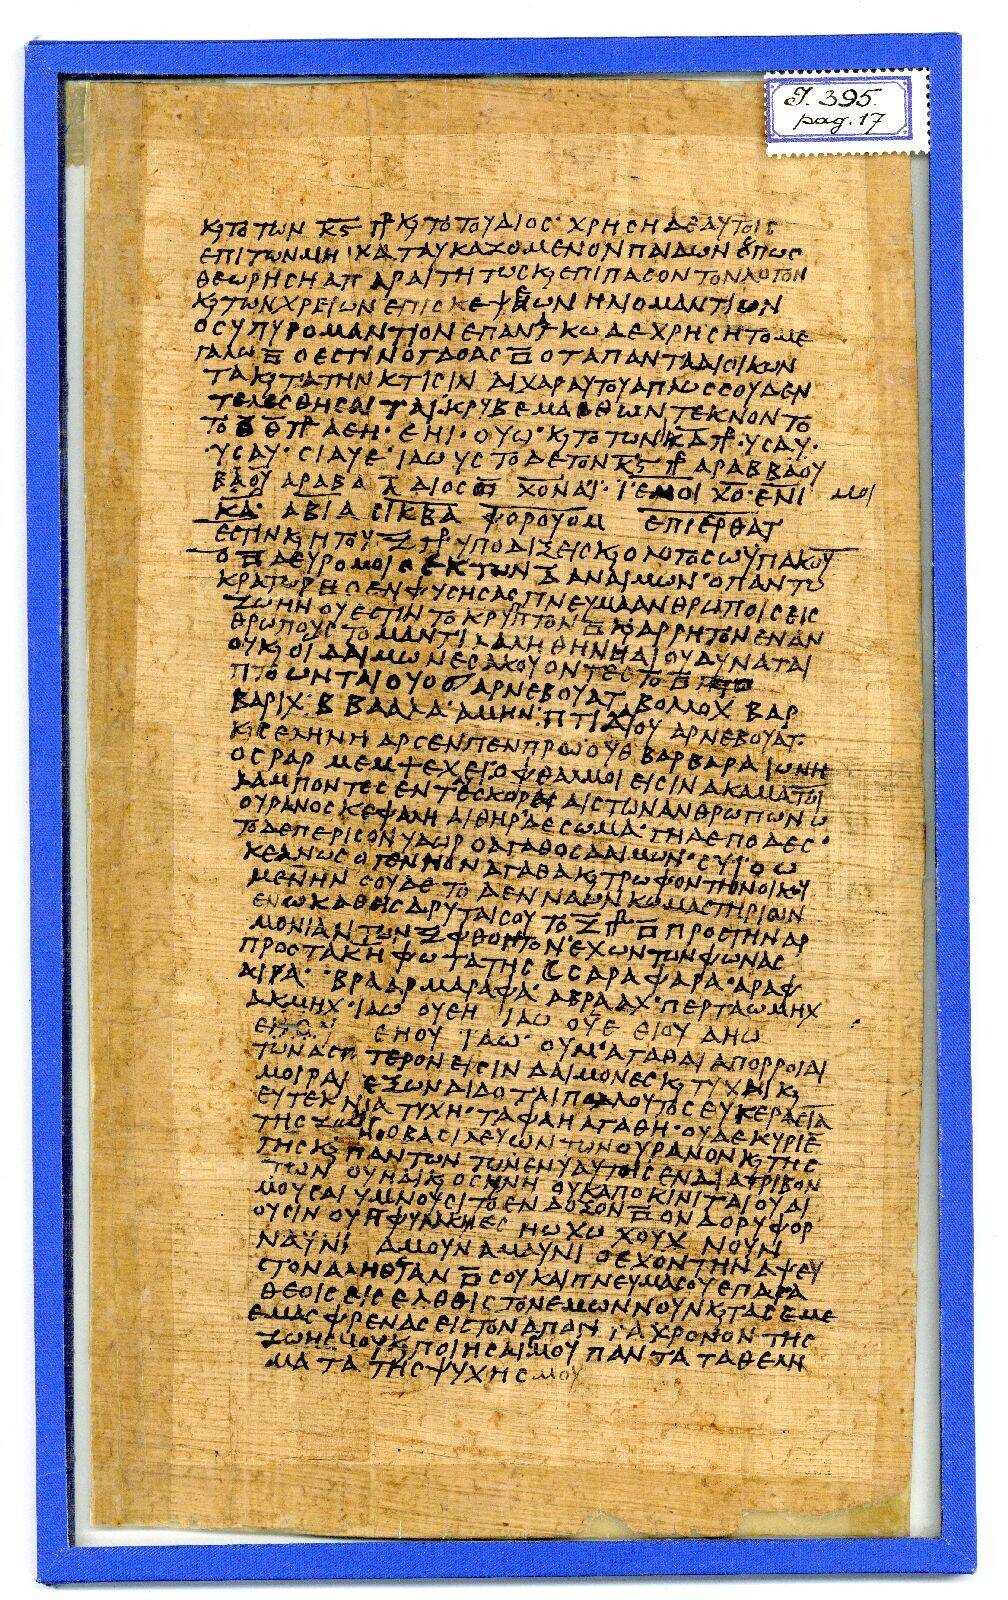 J. 395.
pag. 17
ΚϚ ΤΟ ΤΩΝ Κ̅Ϛ̅ ΚϚ ΤΟ ΤΟΥ ΔΙΟΣ· ΧΡΗϹΗ ΔΕ ΑΥΤΟΙϹ
ΕΠΙ ΤΩΝ ΜΗ ΚΑΤΑΥΚΑΖΟΜΕΝΟΝ ΠΑΙΔΩΝ ΟΠΩϹ
ΘΕΩΡΗϹΗ ΑΠΑΡΑΙΤΗΤΩϹ ΚϚ ΕΠΙ ΠΑϹΟΝ ΤΟΝ
ΚϚ ΤΩΝ ΧΡΕΙΩΝ ΕΠΙϹΚΕΨΕΩΝ ΗΛΙΟΜΑΝΤΙΩΝ
ΠΥΡΟΜΑΝΤΙΟΝ ΕΠΑΝ ΔΕ ΧΡΗϹΗ ΤΟ ΜΕ
ΓΑΛΩ Ο ΕϹΤΙΝ ΟΓΔΟΑϹ Ο ΤΑ ΠΑΝΤΑ ΔΙΟΙΚΩΝ
ΤΑ ΚΑΤΑ ΤΗΝ ΚΤΙϹΙΝ ΔΙΧΑ ΓΑΡ ΑΥΤΟΥ ΑΠΛΩϹ ΟΥΔΕΝ
ΤΕΛΕϹΘΗϹΕΤΑΙ ΚΡΥΒΕ ΜΑΘΩΝ ΤΕΚΝΟΝ ΤΟ
ΤΟ Θ ΑΕΗ· ΕΗΙ· ΟΥΩ· ΚϚ ΤΟ ΤΩΝ ΥϹΑΥ·
·ΥϹΑΥ· ϹΙΑΥΕ· ΙΑΩ ΥϹ ΤΟ ΔΕ ΤΟΝ Κ̅Ϛ̅ ΑΡΑΒΒΑΟΥ
ΒΑΟΥ ΑΡΑΒΑ ΧΟΝΑΙ· ΙΕΜΟΙ ΧΟ·ΕΝΙ ΜΟΙ
ΚΑ· ΑΒΙΑ ϹΙΚΒΑ ΦΟΡΟΥΟΜ ΕΠΙΕΡΘΑΤ
ΕϹΤΙΝ ΚϚ Η ΤΟΥ Ζ ΥΠΟΔΙΞΕΙϹ ΚϚ Ο ΛΟΓΟϹ Ω ΥΠΑΚΟΥ
ΔΕΥΡΟ ΜΟΙ Ο ΕΚ ΤΩΝ Δ ΑΝΑΙΜΩΝ Ο ΠΑΝΤΩ
ΚΡΑΤΩΡ Η Ο ΕΝΦΥϹΗϹΑϹ ΠΝΕΥΜΑ ΑΝΘΡΩΠΟΙϹ ΕΙϹ
ΖΩΗΝ ΟΥ ΕϹΤΙΝ ΤΟ ΚΡΥΠΤΟΝ ΑΡΡΗΤΟΝ ΕΝ ΑΝ
ΘΡΩΠΟΥϹ ΤΟ ΜΑΝΤΙ ΛΑΛΗΘΗΝΗΑΙ ΟΥ ΔΥΝΑΤΑΙ
ΟΥ ΚϚ ΟΙ ΔΑΙΜΩΝΕϹ ΑΚΟΥΟΝΤΕϹ ΤΟ
ΠΤΟΩΝΤΑΙ ΟΥ Ο ΑΡΝΕΒΟΥΑΤ ΒΟΛΛΟΧ ΒΑΡ
ΒΑΡΙΧ· Β ΒΑΑΛΑ ΑΜΗΝ· ΠΤΙΔΑΙΟΥ ΑΡΝΕΒΟΥΑΤ·
ΚϚ ϹΕΛΗΝΗ ΑΡϹΕΝΠΕΝΠΡΩΟΥΘ ΒΑΡΒΑΡΑΙΩΝΗ
ΟϹΡΑΡ ΜΕΜΨΕΧΕΙ· ΟΦΘΑΛΜΟΙ ΕΙϹΙΝ ΑΚΑΜΑΤΟΙ
ΛΑΜΠΟΝΤΕϹ ΕΝ ΤΕϹ ΚΟΡΕϹ ΑΙϹ ΤΩΝ ΑΝΘΡΩΠΩΝ Ω
ΟΥΡΑΝΟϹ ΚΕΦΑΛΗ ΑΙΘΗΡ ΔΕ ϹΩΜΑ· ΓΗ ΔΕ ΠΟΔΕϹ·
ΤΟ ΔΕ ΠΕΡΙ ϹΟΝ ΥΔΩΡ Ο ΑΓΑΘΟϹ ΔΑΙΜΩΝ· ϹΥ Ι Ο Ω
ΚΕΑΝΩϹ Ο ΓΕΝΝΟΝ ΑΓΑΘΑ ΚϚ ΤΡΩΦΟΝ ΤΗΝ ΟΙΚΟΥ
ΜΕΝΗΝ ϹΟΥ ΔΕ ΤΟ ΑΕΝΝΑΩΝ ΚΩΜΑϹΤΗΡΙΩΝ
ΕΝ Ω ΚΑΘΕΙΔΡΥΤΑΙ ϹΟΥ ΤΟ Ζ ΠΡΟϹ ΤΗΝ ΑΡ
ΜΟΝΙΑΝ ΤΩΝ Ζ ΦΘΟΝΤΟΝ ΕΧΩΝΤΩΝ ΦΩΝΑϹ
ΠΡΟϹ ΤΑ ΚΗ ΦΩΤΑ ΤΗϹ ϹϹ ϹΑΡΑΦΑΡΑ· ΑΡΑΦ
ΑΙΡΑ· ΒΡΑΑΡΜΑΡΑΦΑ· ΑΒΡΑΑΧ· ΠΕΡΤΑΩΜΗΧ
ΑΚΜΗΧ· ΙΑΩ ΟΥΕΗ ΙΑΩ ΟΥΕ ΕΙΟΥ ΑΗΩ
ΕΗΟΥ ΙΑΩ· ΟΥ Μ ΑΓΑΘΑΙ ΑΠΟΡΡΟΙΑΙ
ΤΩΝ ΑϹΤΕΡΟΝ ΕΙϹΙΝ ΔΑΙΜΟΝΕϹ ΚϚ ΤΥΧΑΙ ΚϚ
ΜΟΙΡΑΙ ΕΞ ΩΝ ΔΙΔΟΤΑΙ ΠΛΟΥΤΟϹ ΕΥΚΕΡΑϹΙΑ
ΕΥΤΕΚΝΙΑ ΤΥΧΗ· ΤΑΦΑΗ ΑΓΑΘΗ· ϹΥ ΔΕ ΚΥΡΙΕ
ΤΗϹ ΖΩΗϹ Ο ΒΑϹΙΛΕΥΩΝ ΤΩΝ ΟΥΡΑΝΟΝ ΚϚ ΤΗϹ
ΤΗϹ ΚϚ ΠΑΝΤΩΝ ΤΩΝ ΕΝ ΥΑΥΤΟΙϹ ΕΝΔΙΑΤΡΙΒΟΝ
ΤΩΝ ΟΥ Η ΔΙΚΟϹΗΝΗ ΟΥΚ ΑΠΟΚΙΝΙΤΑΙ ΟΥ ΑΙ
ΜΟΥϹΑΙ ΥΜΝΟΥϹΙ ΤΟ ΕΝΔΟΞΟΝ ΟΝ ΔΟΡΥΦΟΡ
ΟΥϹΙΝ ΟΙ Η ΦΥΛΑΚΗΕϹ ΗΩ ΧΩ ΧΟΥΧ ΝΟΥΝ
ΝΑΥΝΙ ΑΜΟΥΝ ΑΜΑΥΝΙ Ο ΕΧΟΝ ΤΗΝ ΑΨΕΥ
ϹΤΟΝ ΑΛΗΘΙΑΝ ϹΟΥ ΚΑΙ ΠΝΕΥΜΑ ϹΟΥ ΕΠ ΑΓΑ
ΘΕΟΙϹ ΕΙϹΕΛΘΙϹ ΤΟΝ ΕΜΩΝ ΝΟΥΝ ΚϚ ΤΑϹ ΕΜΕ
ΕΜΑϹ ΦΡΕΝΑϹ ΕΙϹ ΤΟΝ ΑΠΑΝΤΑ ΧΡΟΝΟΝ ΤΗϹ
ΖΩΗϹ ΜΟΥ ΚϚ ΠΟΙΗϹΑΙ ΜΟΥ ΠΑΝΤΑ ΤΑ ΘΕΛΗ
ΜΑΤΑ ΤΗϹ ΨΥΧΗϹ ΜΟΥ